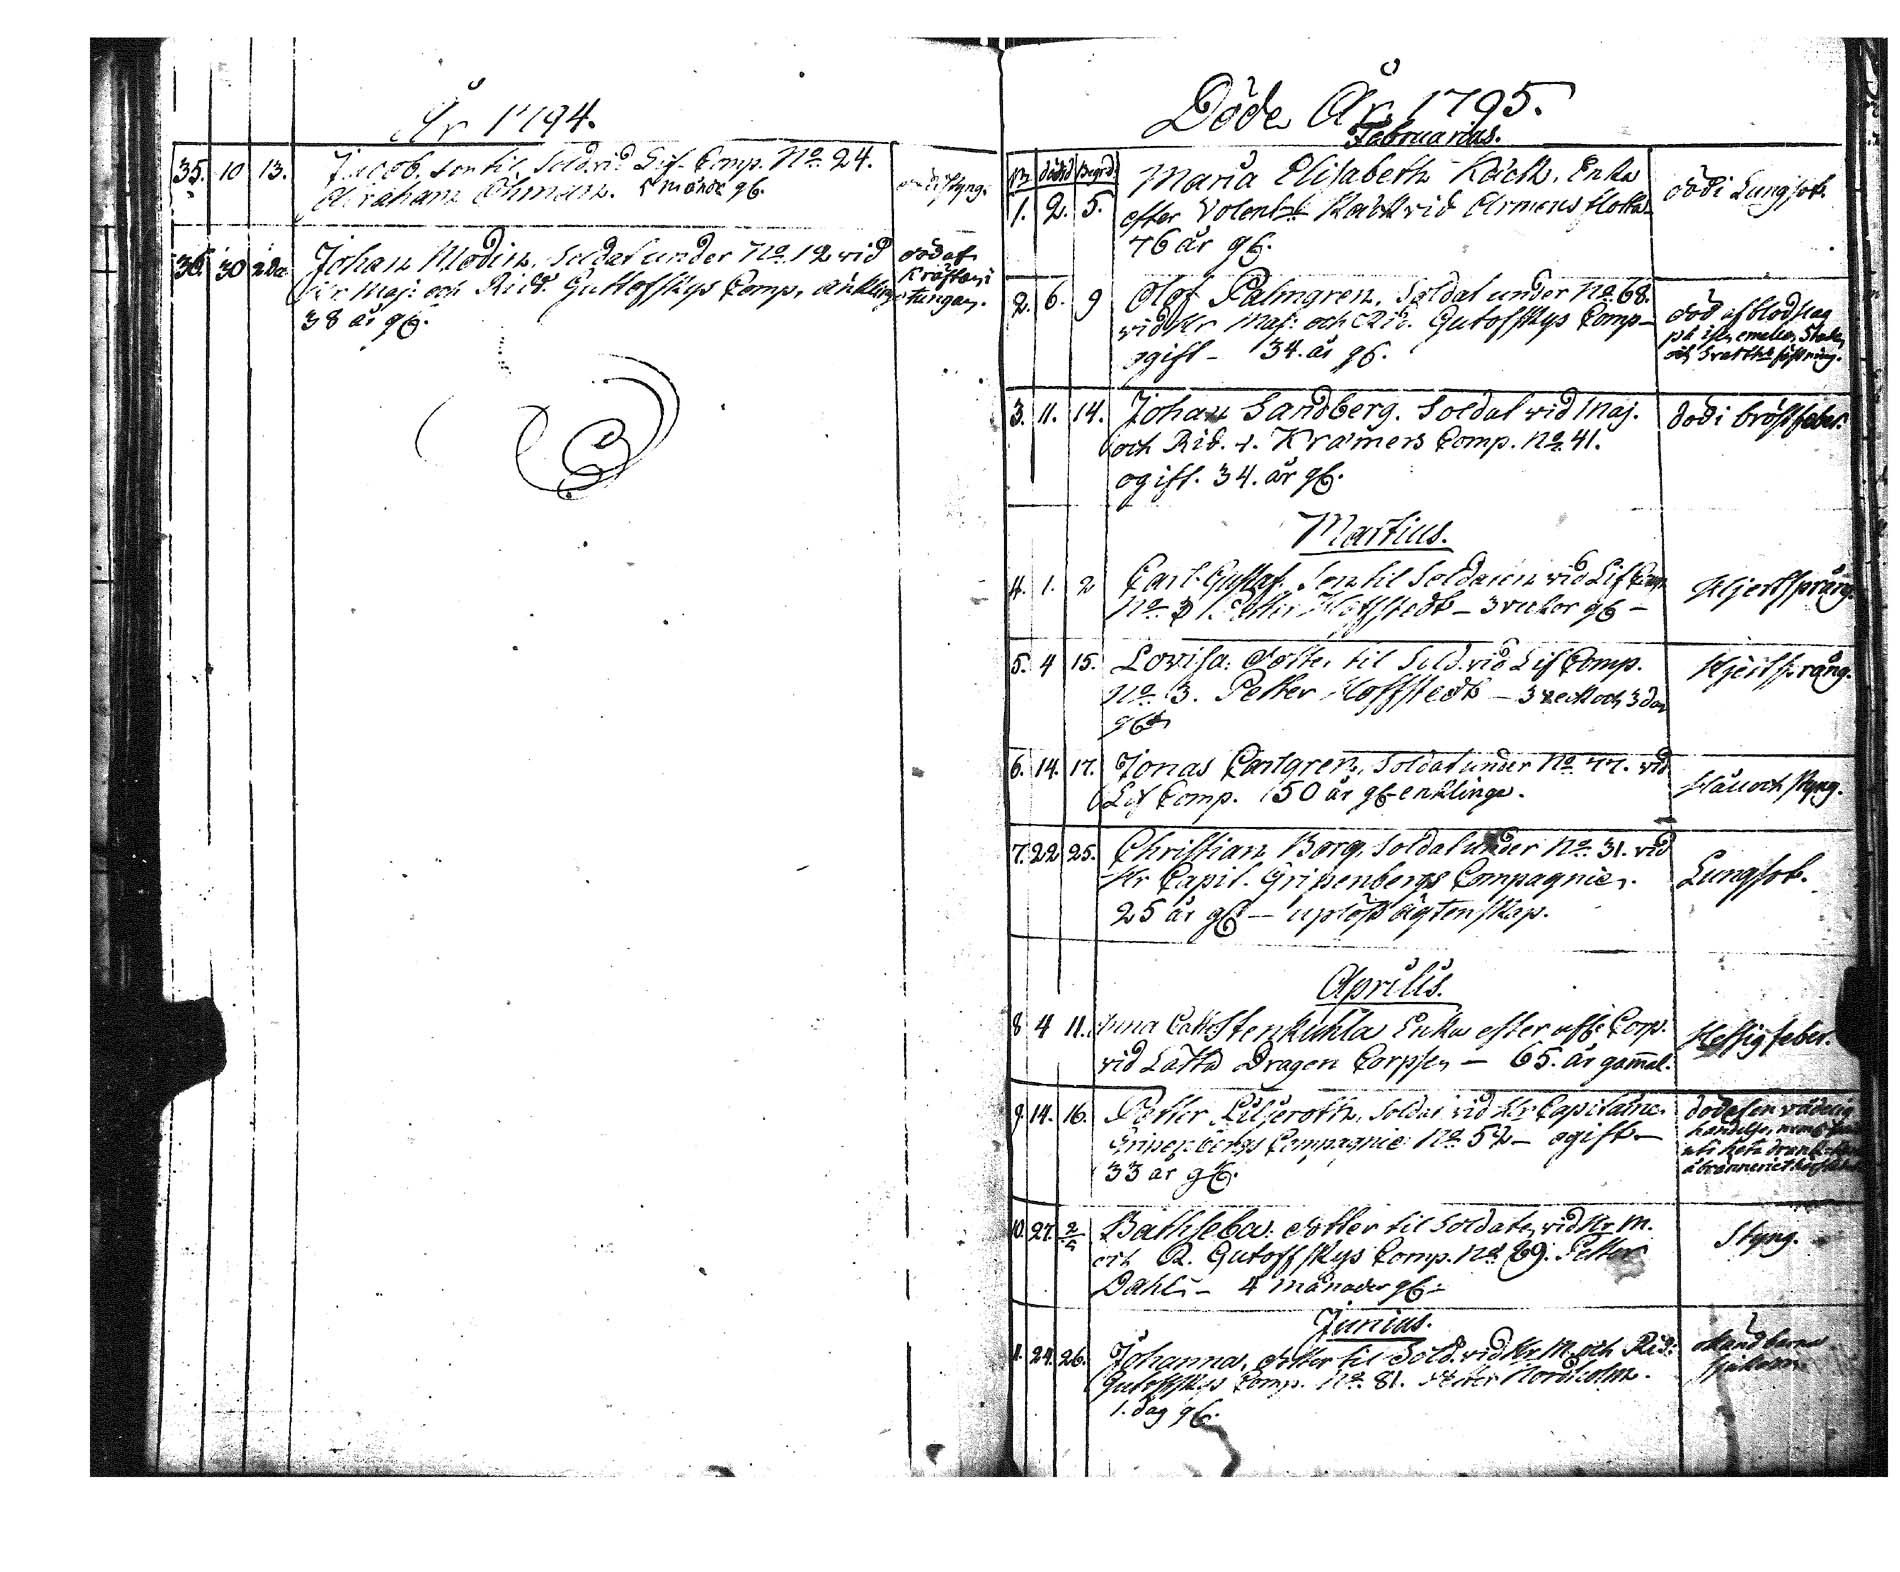 År 1794.
35. 10 13. Jacob, son til Sold. vid Lif. Comp. No. 24.
Abraham Öhman. 5 månad. gl. död i styng.
36. 30 2da Johan Modin, Soldat under No. 12 vid
Hr Maj: och Ridd. Guttofskys Comp, änkling
38 år gl.
död af
Kräftan i
tungan.
Döde År 1795.
Februarius.
N död d begrd
1. 2. 5. Maria Elisabeth Räck, Enka
efter Volent. Räck vid Armens flotta
76 år gl.
död i Lungsot.
2. 6. 9 Olof Palmgren, Soldat under No. 68.
vid Hr Maj: och Rid. Gutofskys Comp-
ogift - 34. år gl.
död af blodslag
på isen emellan Staden
och fästning.
3. 11. 14. Johan Sandberg. Soldat vid Maj.
och Rid. v. Kræmers Comp. No. 41.
ogift. 34. år gl.
död i bröstfeber.
Martius.
4. 1. 2 Carl Gustaf. Son til Soldaten vid Lif Comp
No. 3 Petter Hoffstedt - 3 veckor gl -
Hjertsprång.
5. 4 15. Lovisa: dotter til Sold. vid Lif Comp.
No. 3. Petter Hoffstedt - 3 veck och 3 dar
gl
Hjertsprång.
6. 14. 17. Jonas Carlgren, Soldat under No. 77. vid
Lif Comp. 50 år gl enklinge.
Håll och styng.
7. 22 25. Christian Borg, Soldat under No. 31. vid
Hr Capit. Gripenbergs Compagnie.
25 år gl - uplöst ägtenskap.
Lungsot.
Aprilis.
8 4 11. Anna Cath Stenkuhla Enka efter aff. Corp.
vid Lätta Dragon Corpsen - 65. år gammal.
Hettig feber.
9 14. 16. Petter Liljeroth, Soldat vid Hr Capitaine
Gripenbergs Compagnie No. 52 - ogift -
33 år gl.
död af en vådelig
händelse,
10. 27. 2/5 Bathseba: dotter til Soldaten vid Hr M.
och R. Gutoffskys Comp. No. 29. Petter
Dahl - 4 månader gl -
Styng.
Junius.
11. 24. 26. Johanna, dotter til Sold. vid Hr M. och Rid:
Gutoffskys Comp. No. 81. Nordholm.
1. dag gl.